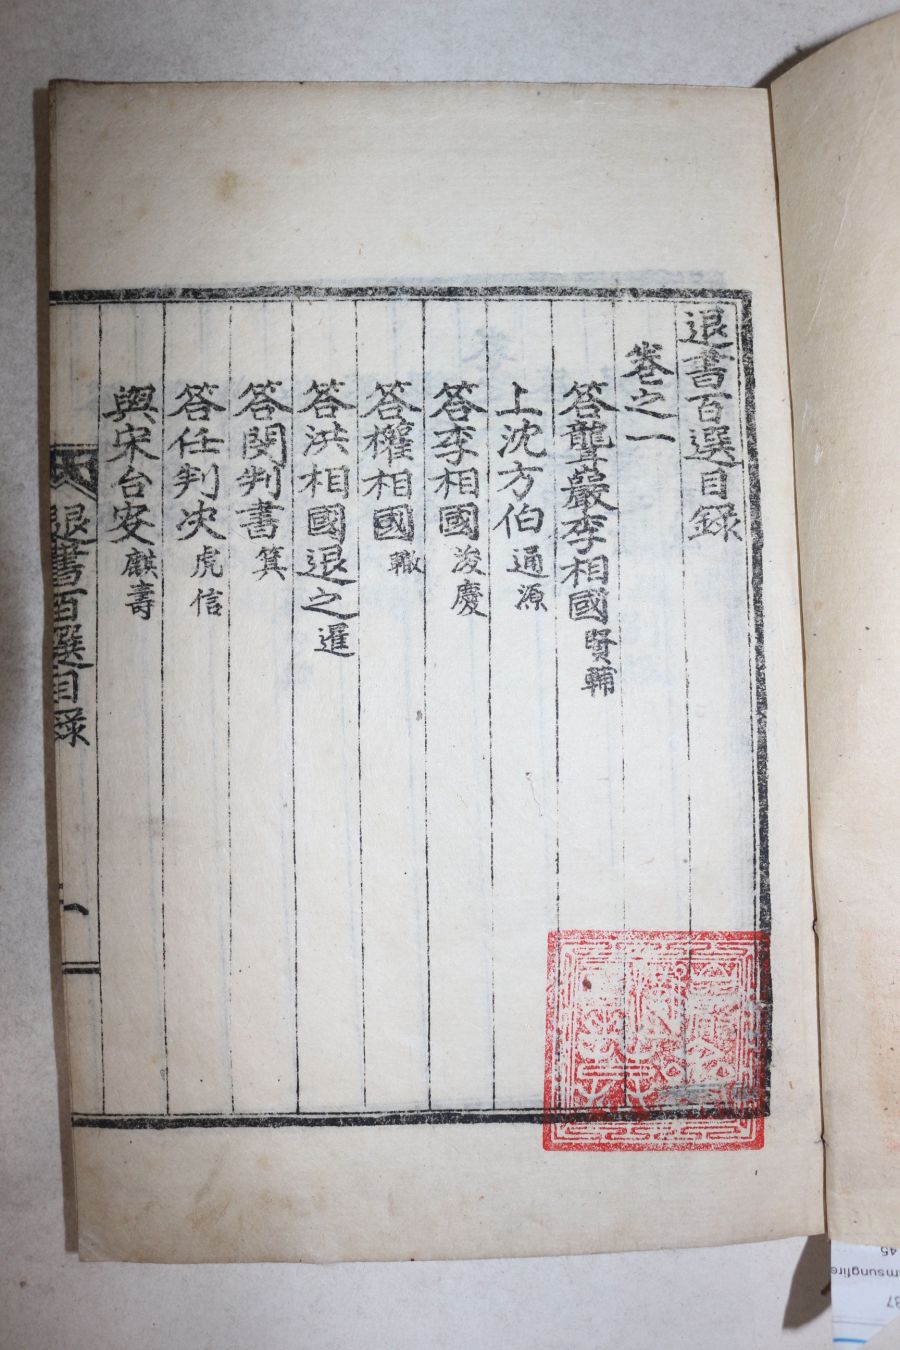 退書百選目錄
卷之一
答聾巖李相國 賢輔
上沈方伯 通源
答李相國 浚慶
答權相國 轍
答洪相國退之 暹
答閔判書 箕
答任判决 虎信
與宋台叟 麒壽
退書百選目錄
一
amsungfire
45
37